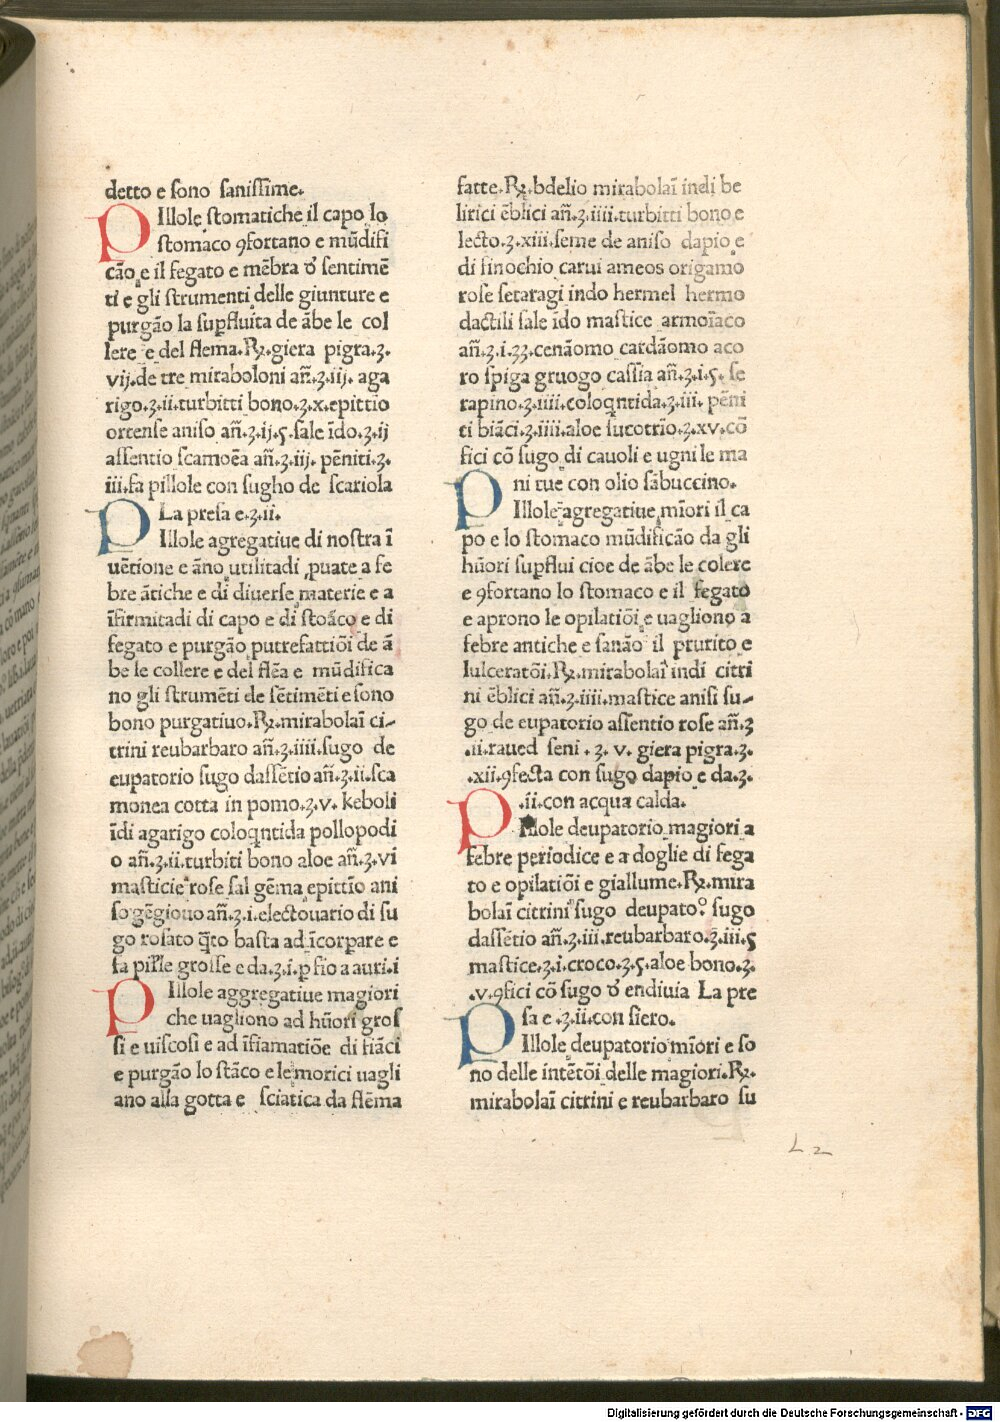 detto e sono sanissime.
Pillole stomatiche il capo lo
stomaco ꝯfortano e mūdifi
cāo e il fegato e mēbra đ sentimē
ti e gli strumenti delle giunture e
purgāo la supfluita de ābe le col
lere e del flema.℞.giera pigra.ʒ.
vij.de tre miraboloni añ.ʒ.iij. aga
rigo.ʒ.ii.turbitti bono.ʒ.x.epittio
ortense aniso añ.ʒ.ij.ς.sale īdo.ʒ.ij
assentio scamoēa añ.ʒ.iij. pēniti.ʒ.
iii.fa pillole con sugho de scariola
La presa e.ʒ.ii.
Pillole agregatiue di nostra ī
uētione e āno utilitadi ꝓuate a fe
bre ātiche e di diuerse materie e a
īfirmitadi di capo e di stoāco e di
fegato e purgāo putrefattiōi de ā
be le collere e del flēa e mūdifica
no gli strumēti de sētimēti e sono
bono purgatiuo.℞.mirabolaī ci-
trini reubarbaro añ.ʒ.iiii.sugo de
eupatorio sugo dassētio añ.ʒ.ii.sca
monea cotta in pomo.ʒ.v. keboli
īdi agarigo coloqntida pollopodi
o añ.ʒ.ii.turbiti bono aloe añ.ʒ.vi
masticie rose sal gēma epittīo ani
so gēgiouo añ.ʒ.i.electouario di su
go rosato q̄to basta ad īcorpare e
fa pille grosse e da.ʒ.i.p fio a auri.i
Pillole aggregatiue magiori
che uagliono ad hūori gros
si e uiscosi e ad īfiamatiōe di fiāci
e purgāo lo stāco e le morici uagli
ano alla gotta e sciatica da flēma
fatte.℞.bdelio mirabolaī indi be
lirici ēblici añ.ʒ.iiii.turbitti bono e
lecto.ʒ.xiii.seme de aniso dapio e
di finochio carui ameos origamo
rose setaragi indo hermel hermo
dactili sale īdo mastice armoīaco
añ.ʒ.i.ʒʒ.cenāomo cardāomo aco
ro spiga gruogo cassīa añ.ʒ.i.ς. se
rapino.ʒ.iiii.coloqntida.ʒ.iii. pēni
ti biāci.ʒ.iiii.aloe sucotrīo.ʒ.xv.cō
fici cō sugo di cauoli e ugni le ma
ni tue con olio sābuccino.
Pillole agregatiue mīori il ca
po e lo stomaco mūdificāo da gli
hūori supflui cioe de ābe le colere
e ꝯfortano lo stomaco e il fegato
e aprono le opilatiōi e uagliono a
febre antiche e sanāo il prurito e
lulceratōi.℞.mirabolaī indi citri
ni ēblici añ.ʒ.iiii.mastice anisi su-
go de eupatorio assentio rose añ.ʒ
.ii.raued seni.ʒ.v. giera pigra.ʒ.
.xii.ꝯfecta con sugo dapio e da.ʒ.
.ii.con acqua calda.
Pillole deupatorio magiori a
febre periodice e a doglie di fega
to e opilatiōi e giallume.℞.mira
bolaī citrini sugo deupato° sugo
dassētio añ.ʒ.iii.reubarbaro.ʒ.iii.ς
mastice.ʒ.i.croco.ʒ.ς.aloe bono.ʒ.
.v.ꝯfici cō sugo đ endiuia La pre
sa e .ʒ.ii.con siero.
Pillole deupatorio mīori e so
no delle intētōi delle magiori.℞.
mirabolaī citrini e reubarbaro su
L 2
Digitalisierung gefördert durch die Deutsche Forschungsgemeinschaft - DFG